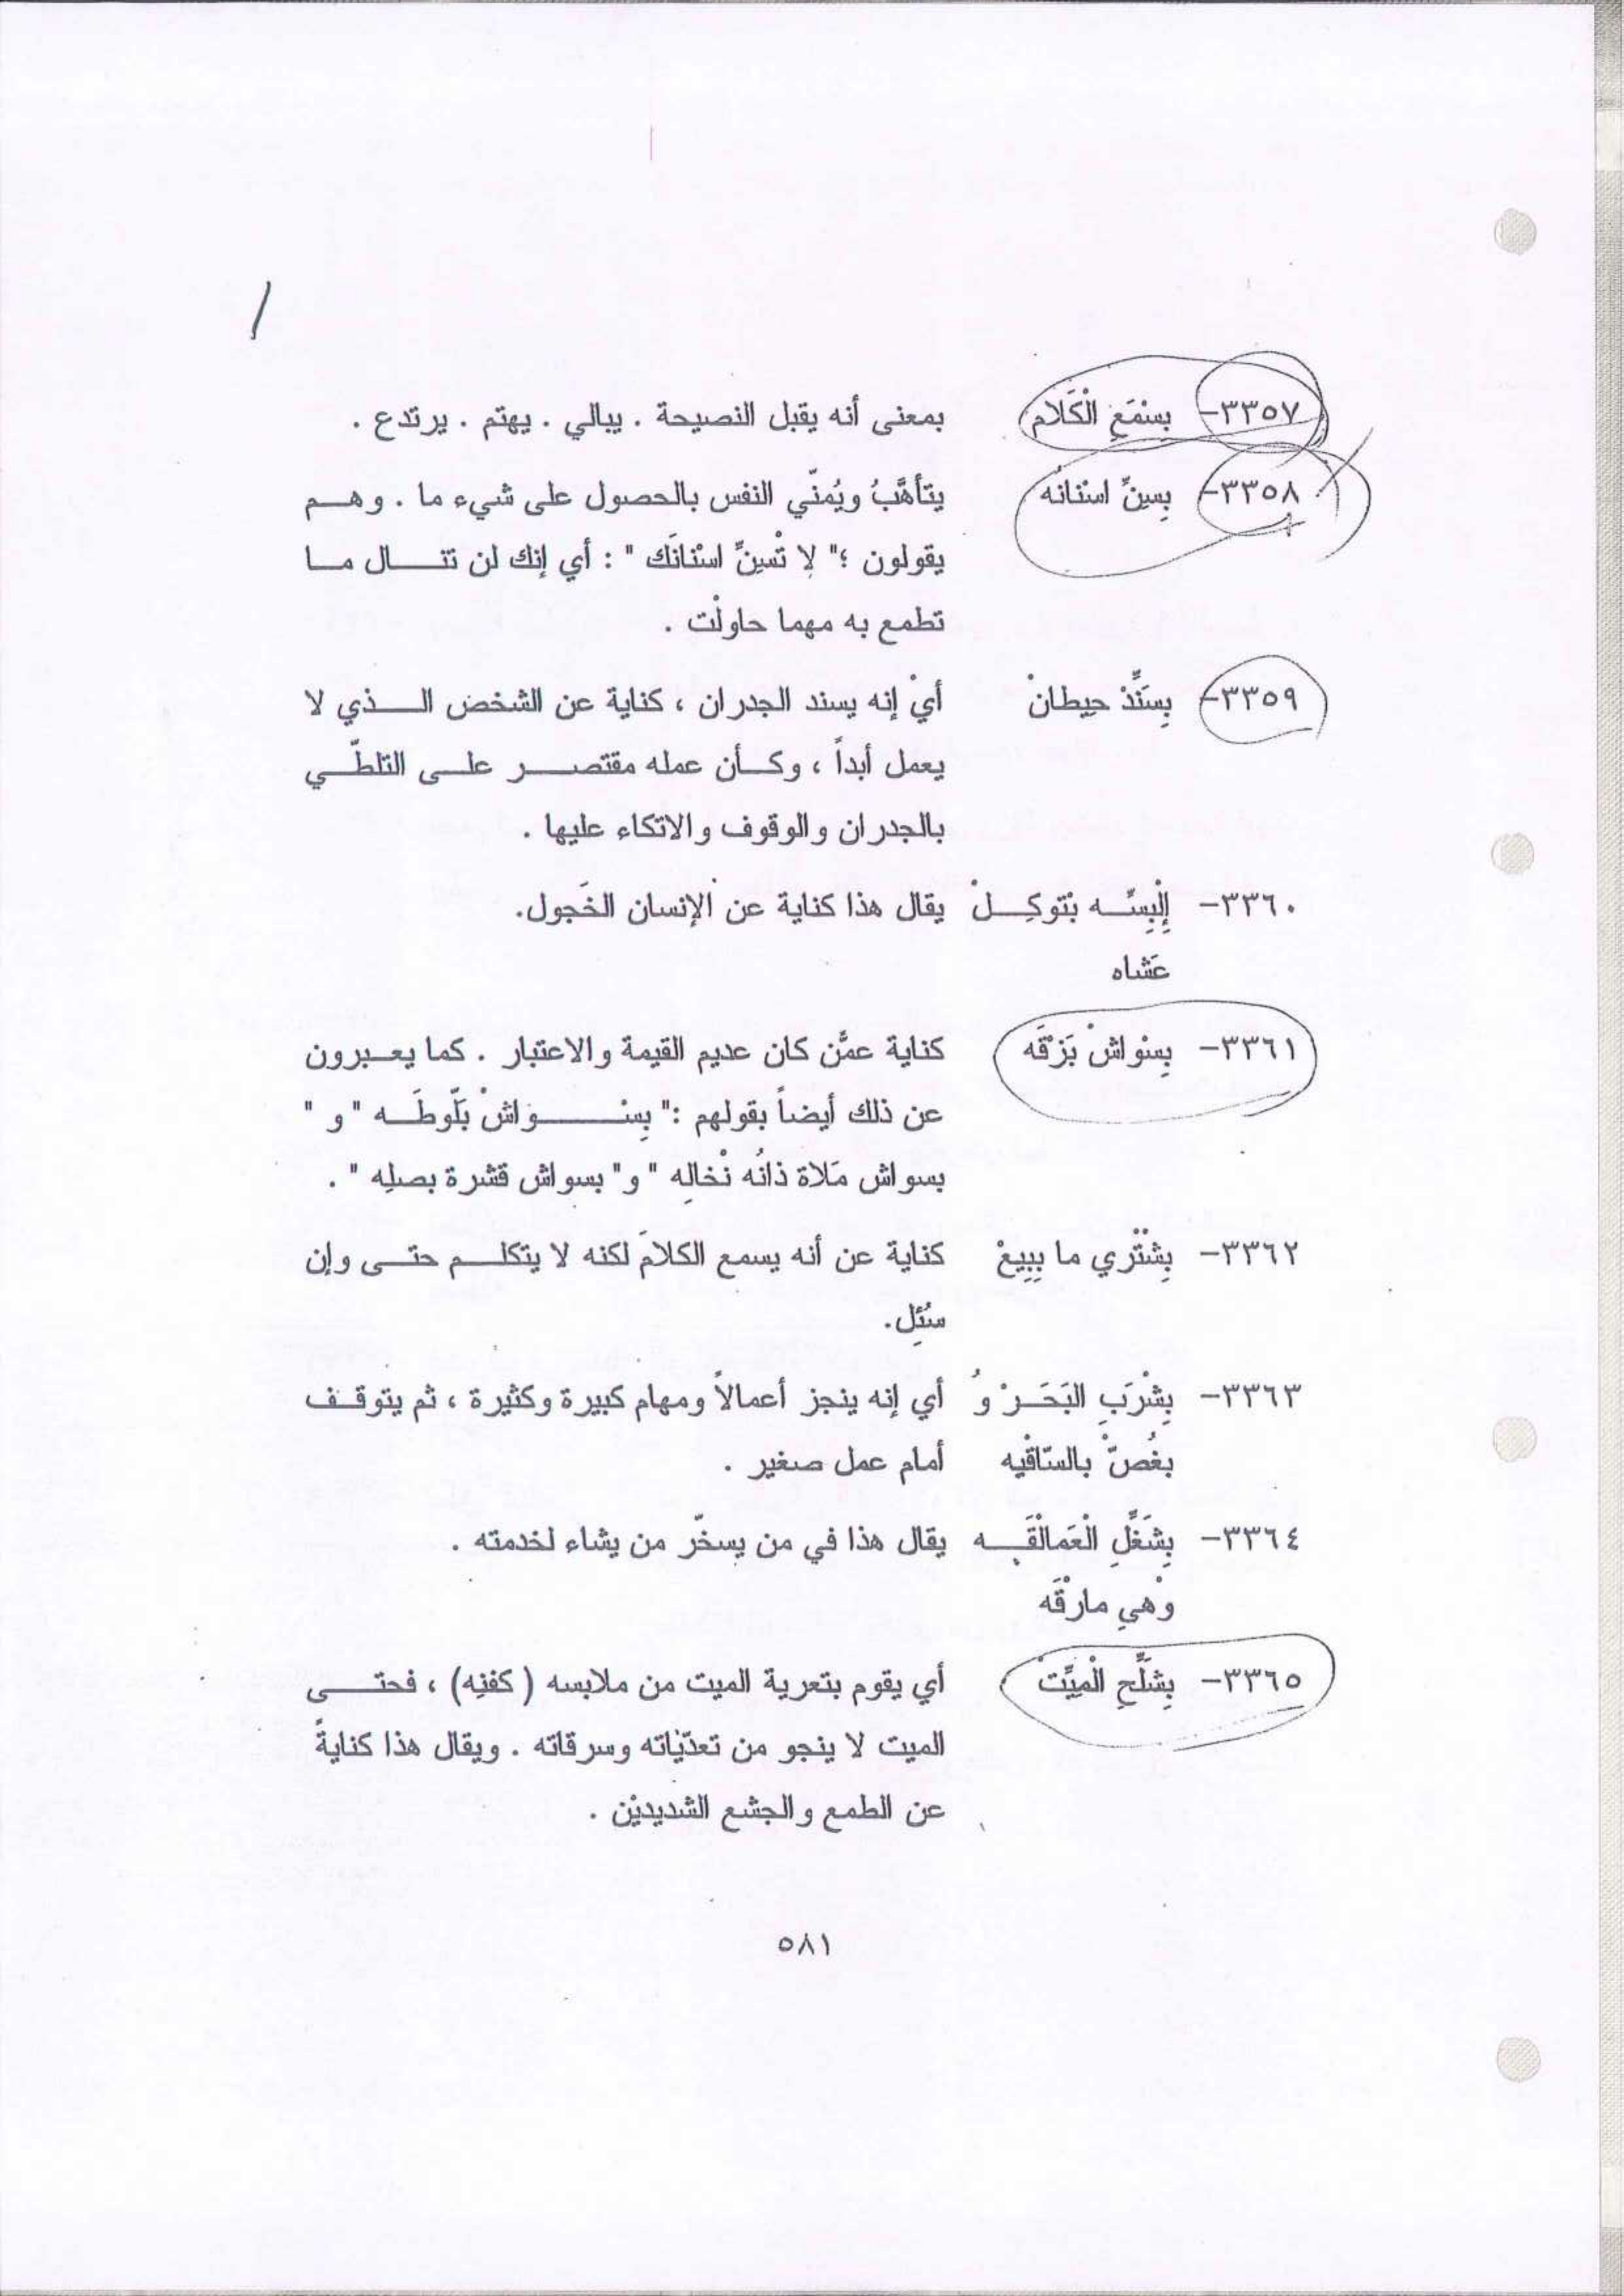 ٣٣٥٧- بسْمَعِ الْكَلام بمعنى أنه يقبل النصيحة . يبالي . يهتم . يرتدع .
٣٣٥٨- بِسِنِّ اسْنانُه يتأهَّبُ ويُمنّي النفس بالحصول على شيء ما . وهم
يقولون :" لا تْسِنِّ اسْنانَك " : أي إنك لن تنال ما
تطمع به مهما حاولْت .
٣٣٥٩- بِسَنِّدْ حيطانْ أيْ إنه يسند الجدران ، كناية عن الشخص الذي لا
يعمل أبداً ، وكأن عمله مقتصر على التلطّي
بالجدران والوقوف والاتكاء عليها .
٣٣٦٠- إِلْبِسِّه بْتوكِلْ يقال هذا كناية عن الإنسان الخَجول.
عَشاه
٣٣٦١- بِسْواشْ بَزْقَه كناية عمَّن كان عديم القيمة والاعتبار . كما يعبرون
عن ذلك أيضاً بقولهم :" بِسْواشْ بَلّوطَه " و "
بسواش مَلاة ذانُه نْخالِه " و" بسواش قشرة بصلِه " .
٣٣٦٢- بِشْتْري ما بِبِيعْ كناية عن أنه يسمع الكلامَ لكنه لا يتكلم حتى وإن
سُئِل.
٣٣٦٣- بِشْرَبِ البَحَرْ وُ أي إنه ينجز أعمالاً ومهام كبيرة وكثيرة ، ثم يتوقف
بغُصّْ بالسّاقْيه أمام عمل صغير .
٣٣٦٤- بِشَغِّلِ الْعَمالْقَه يقال هذا في من يسخّر من يشاء لخدمته .
وْهي مارْقَه
٣٣٦٥- بِشَلِّحِ الْميِّتْ أي يقوم بتعرية الميت من ملابسه ( كفنِه) ، فحتى
الميت لا ينجو من تعدّياته وسرقاته . ويقال هذا كنايةً
عن الطمع والجشع الشديديْن .
٥٨١